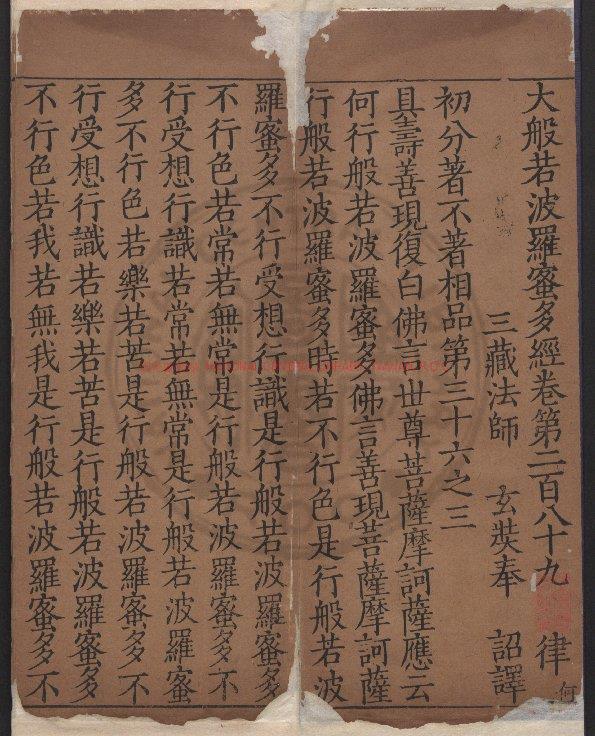 大般若波羅蜜多經卷第二百八十九 律
三藏法師 玄奘奉 詔譯
初分著不著相品第三十六之三
具壽善現復白佛言世尊菩薩摩訶薩應云
何行般若波羅蜜多佛言善現菩薩摩訶薩
行般若波羅蜜多時若不行色是行般若波
羅蜜多不行受想行識是行般若波羅蜜多
不行色若常若無常是行般若波羅蜜多不
行受想行識若常若無常是行般若波羅蜜
多不行色若樂若苦是行般若波羅蜜多不
行受想行識若樂若苦是行般若波羅蜜多
不行色若我若無我是行般若波羅蜜多不